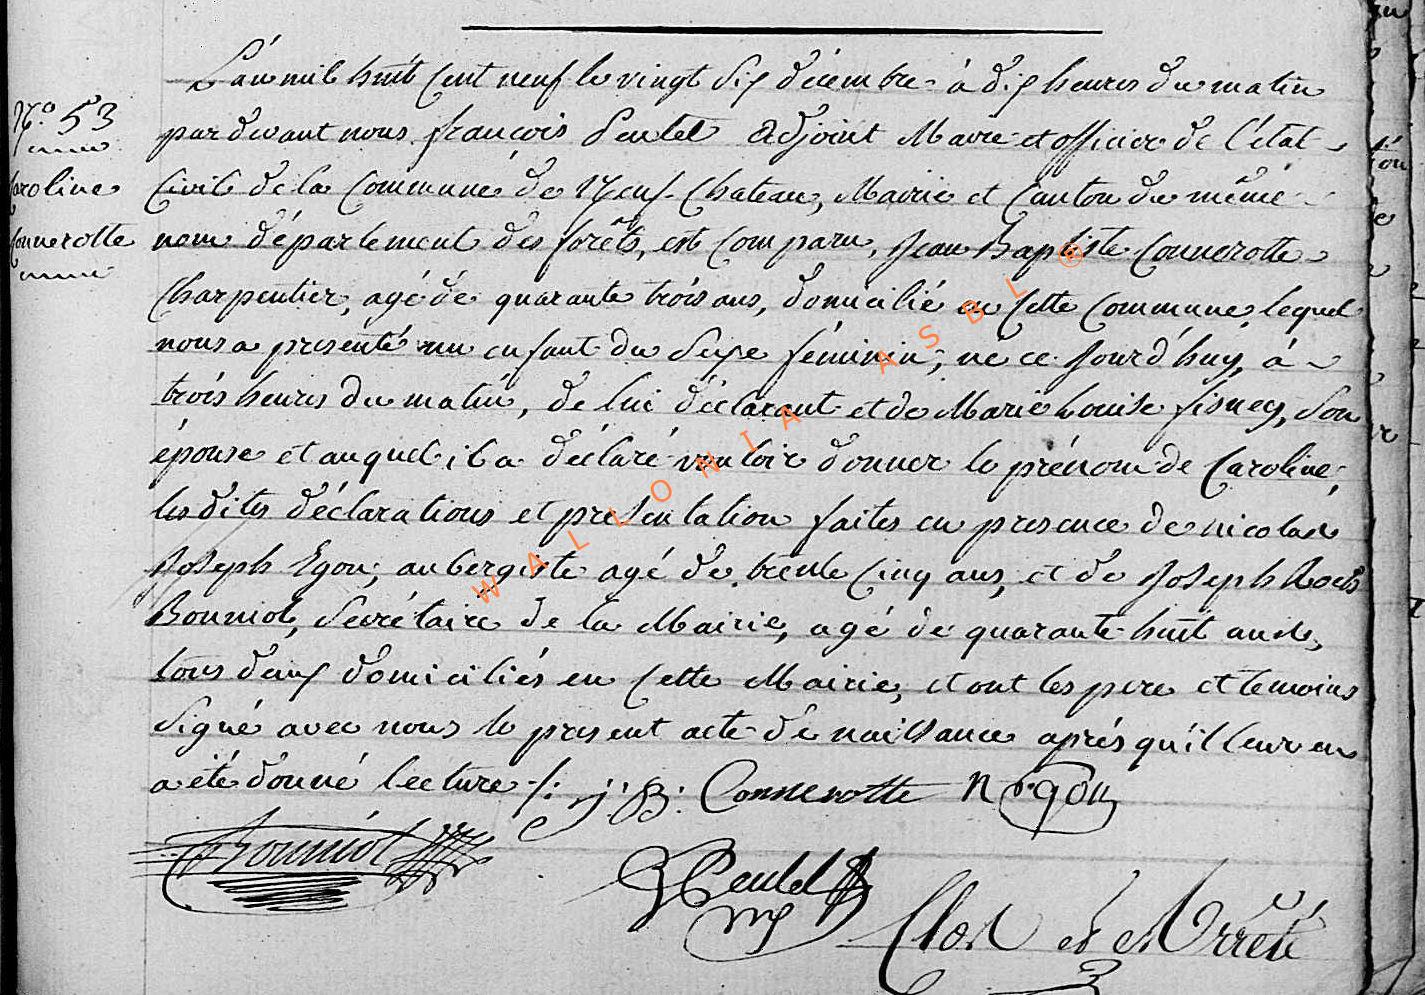 N.° 53
Caroline
Connerotte
L'an mil huit cent neuf le vingt six décembre à dix heures du matin
par devant nous françois Pentel Adjoint Maire et officier de l'état
Civil de la Commune de Neuf-Chateau, Mairie et Canton du même
nom département des forêts, est comparu, Jean Baptiste Connerotte
Charpentier, agé de quarante trois ans, domicilié en Cette Commune, lequel
nous a presenté un enfant du Sexe féminin, né ce Jourd'huy, à
trois heures du matin, de lui déclarant et de Marie Louise fisney, Son
épouse et auquel il a déclaré vouloir donner le prénom de Caroline,
les dites déclarations et présentation faites en presence de nicolas
Joseph Egon, aubergiste agé de trente Cinq ans, et de Joseph Louis
Bourniol, Secrétaire de la Mairie, agé de quarante huit ans,
tous deux domiciliés en Cette Mairie, et ont les pere et temoins
Signé avec nous le present acte de naissance aprés qu'il leur en
a été donné lecture ./: j: B: Connerotte N Egon
Bourniol
Pentel
Clos et Arrêté
WALLONIA ASBL ®